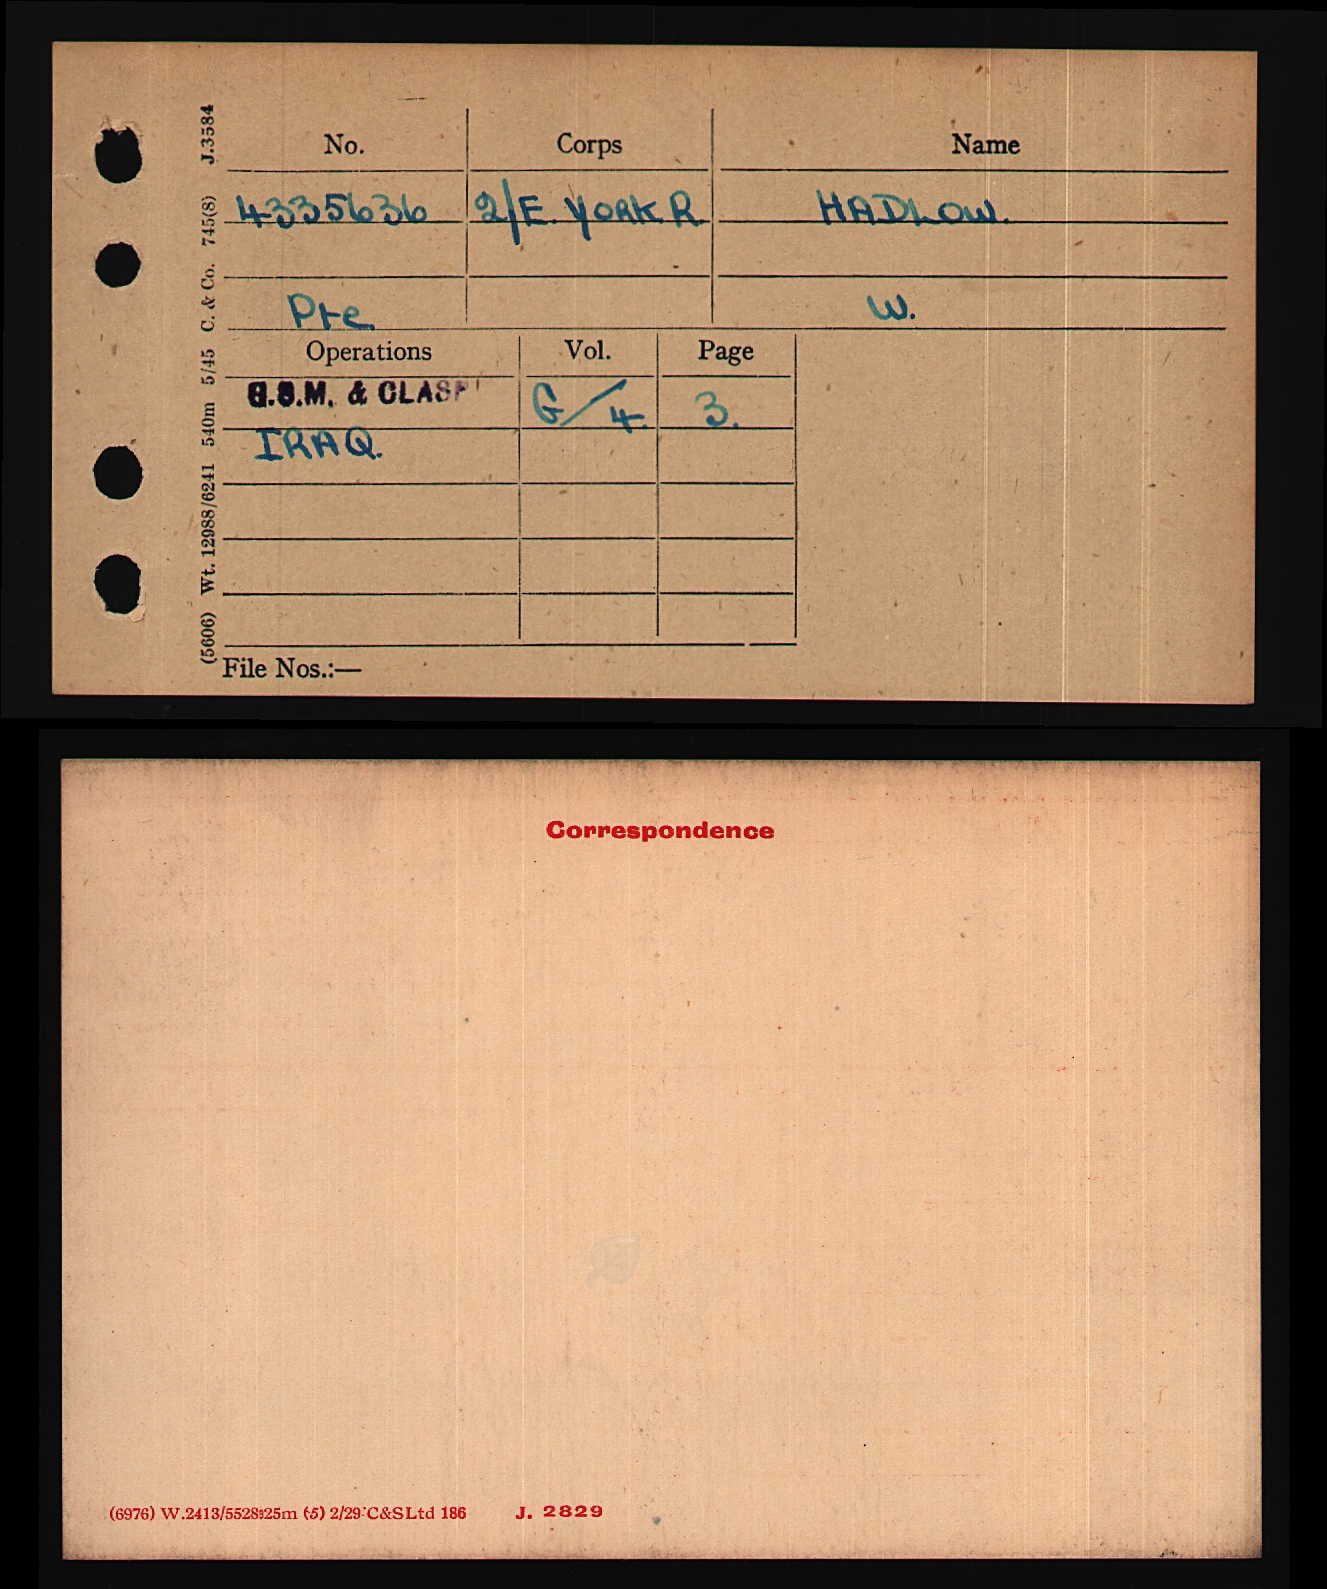 No. Corps Name
4335636 2/E. YORK R. HADLOW.
Pte. W.
Operations Vol. Page
G.S.M. & CLASP G/4. 3.
IRAQ.
File Nos.:—
(5606) Wt. 12988/6241 540m 5/45 C. & Co. 745(8) J.3584
Correspondence
(6976) W.2413/5528 25m (5) 2/29 C&S Ltd 186 J. 2829